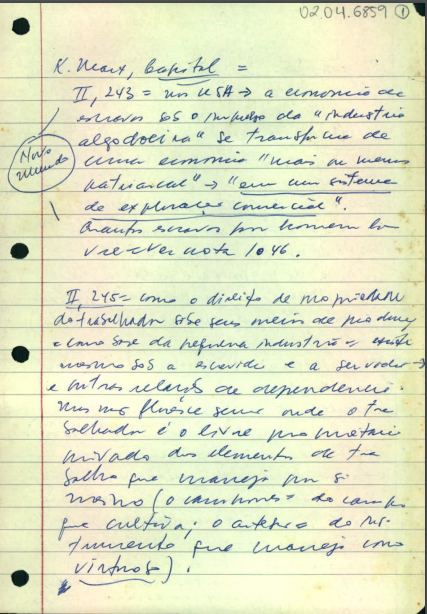 02.04.6859 ①
K. Marx, Capital =
II, 243 = nos USA → a economia de
escravos sob o impulso da "industria
algodoeira" se transforma de
uma economia "mais ou menos
patriarcal" → "em um sistema
de exploração comercial".
Novo
Mundo
Quantos escravos por homem
livre → ver nota 1046.
II, 245 = como o direito de propriedade
do trabalhador sobre seus meios de
= como base da pequena industria =
mesmo sob a escravidão e a servidão
e outras relações de dependencia.
Mas floresce onde o tra
balhador é o livre proprietario
privado dos elementos de tra
balho que maneja por si
mesmo (o camponês = do campo
que cultiva; o artesão = do ins
trumento que maneja como
virtuoso).